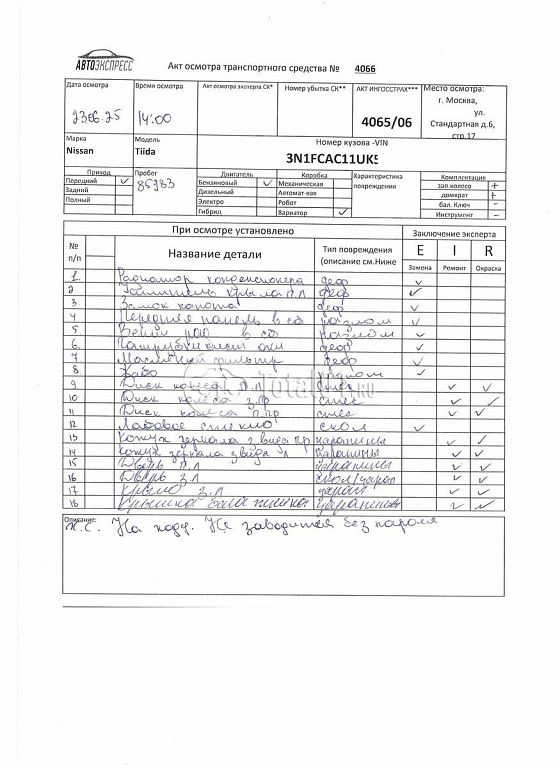 АВТОЭКСПРЕСС
Акт осмотра транспортного средства № 4066
Дата осмотра Время осмотра Акт осмотра эксперта СК* Номер убытка СК** АКТ ИНГОССТРАХ*** Место осмотра:
г. Москва,
ул.
Стандартная д.6,
стр.17
14:00
4065/06
Марка Модель Номер кузова -VIN
Nissan Tiida 3N1FCAC11UK5
Привод Пробег Двигатель Коробка Характеристика повреждения Комплектация
Передний ✓ Бензиновый ✓ Механическая зап.колесо +
Задний 85783 Дизельный Автомат-кая домкрат +
Полный Электро Робот бал. Ключ -
Гибрид Вариатор ✓ Инструмент -
При осмотре установлено Заключение эксперта
№ п/п Название детали Тип повреждения (описание см.Ниже E I R
Замена Ремонт Окраска
1 Радиатор конденсионера деф ✓
2 крыла П.Л деф ✓
3 Замок капота деф ✓
4 Передняя панель в сб разлом ✓
5 в сб разлом ✓
6. деф ✓
7 Масляный фильтр деф ✓
8 разлом ✓
9 Диск колеса П.Л стес ✓ ✓
10 Диск колеса З.ПР стес ✓ ✓
11 Диск колеса П.ПР стес ✓ ✓
12 Лобовое стекло скол ✓
13 Кожух зеркала з вида ПР царапины ✓ ✓
14 Кожух зеркала з вида Л царапины ✓ ✓
15 Дверь П.Л царапины ✓ ✓
16 Дверь З.Л скол/царап ✓ ✓
17 Крыло З.Л царап ✓ ✓
18 Крышка багажника царапины ✓ ✓
Total01.RU
Описание:
На ходу. Не заводится без пароля